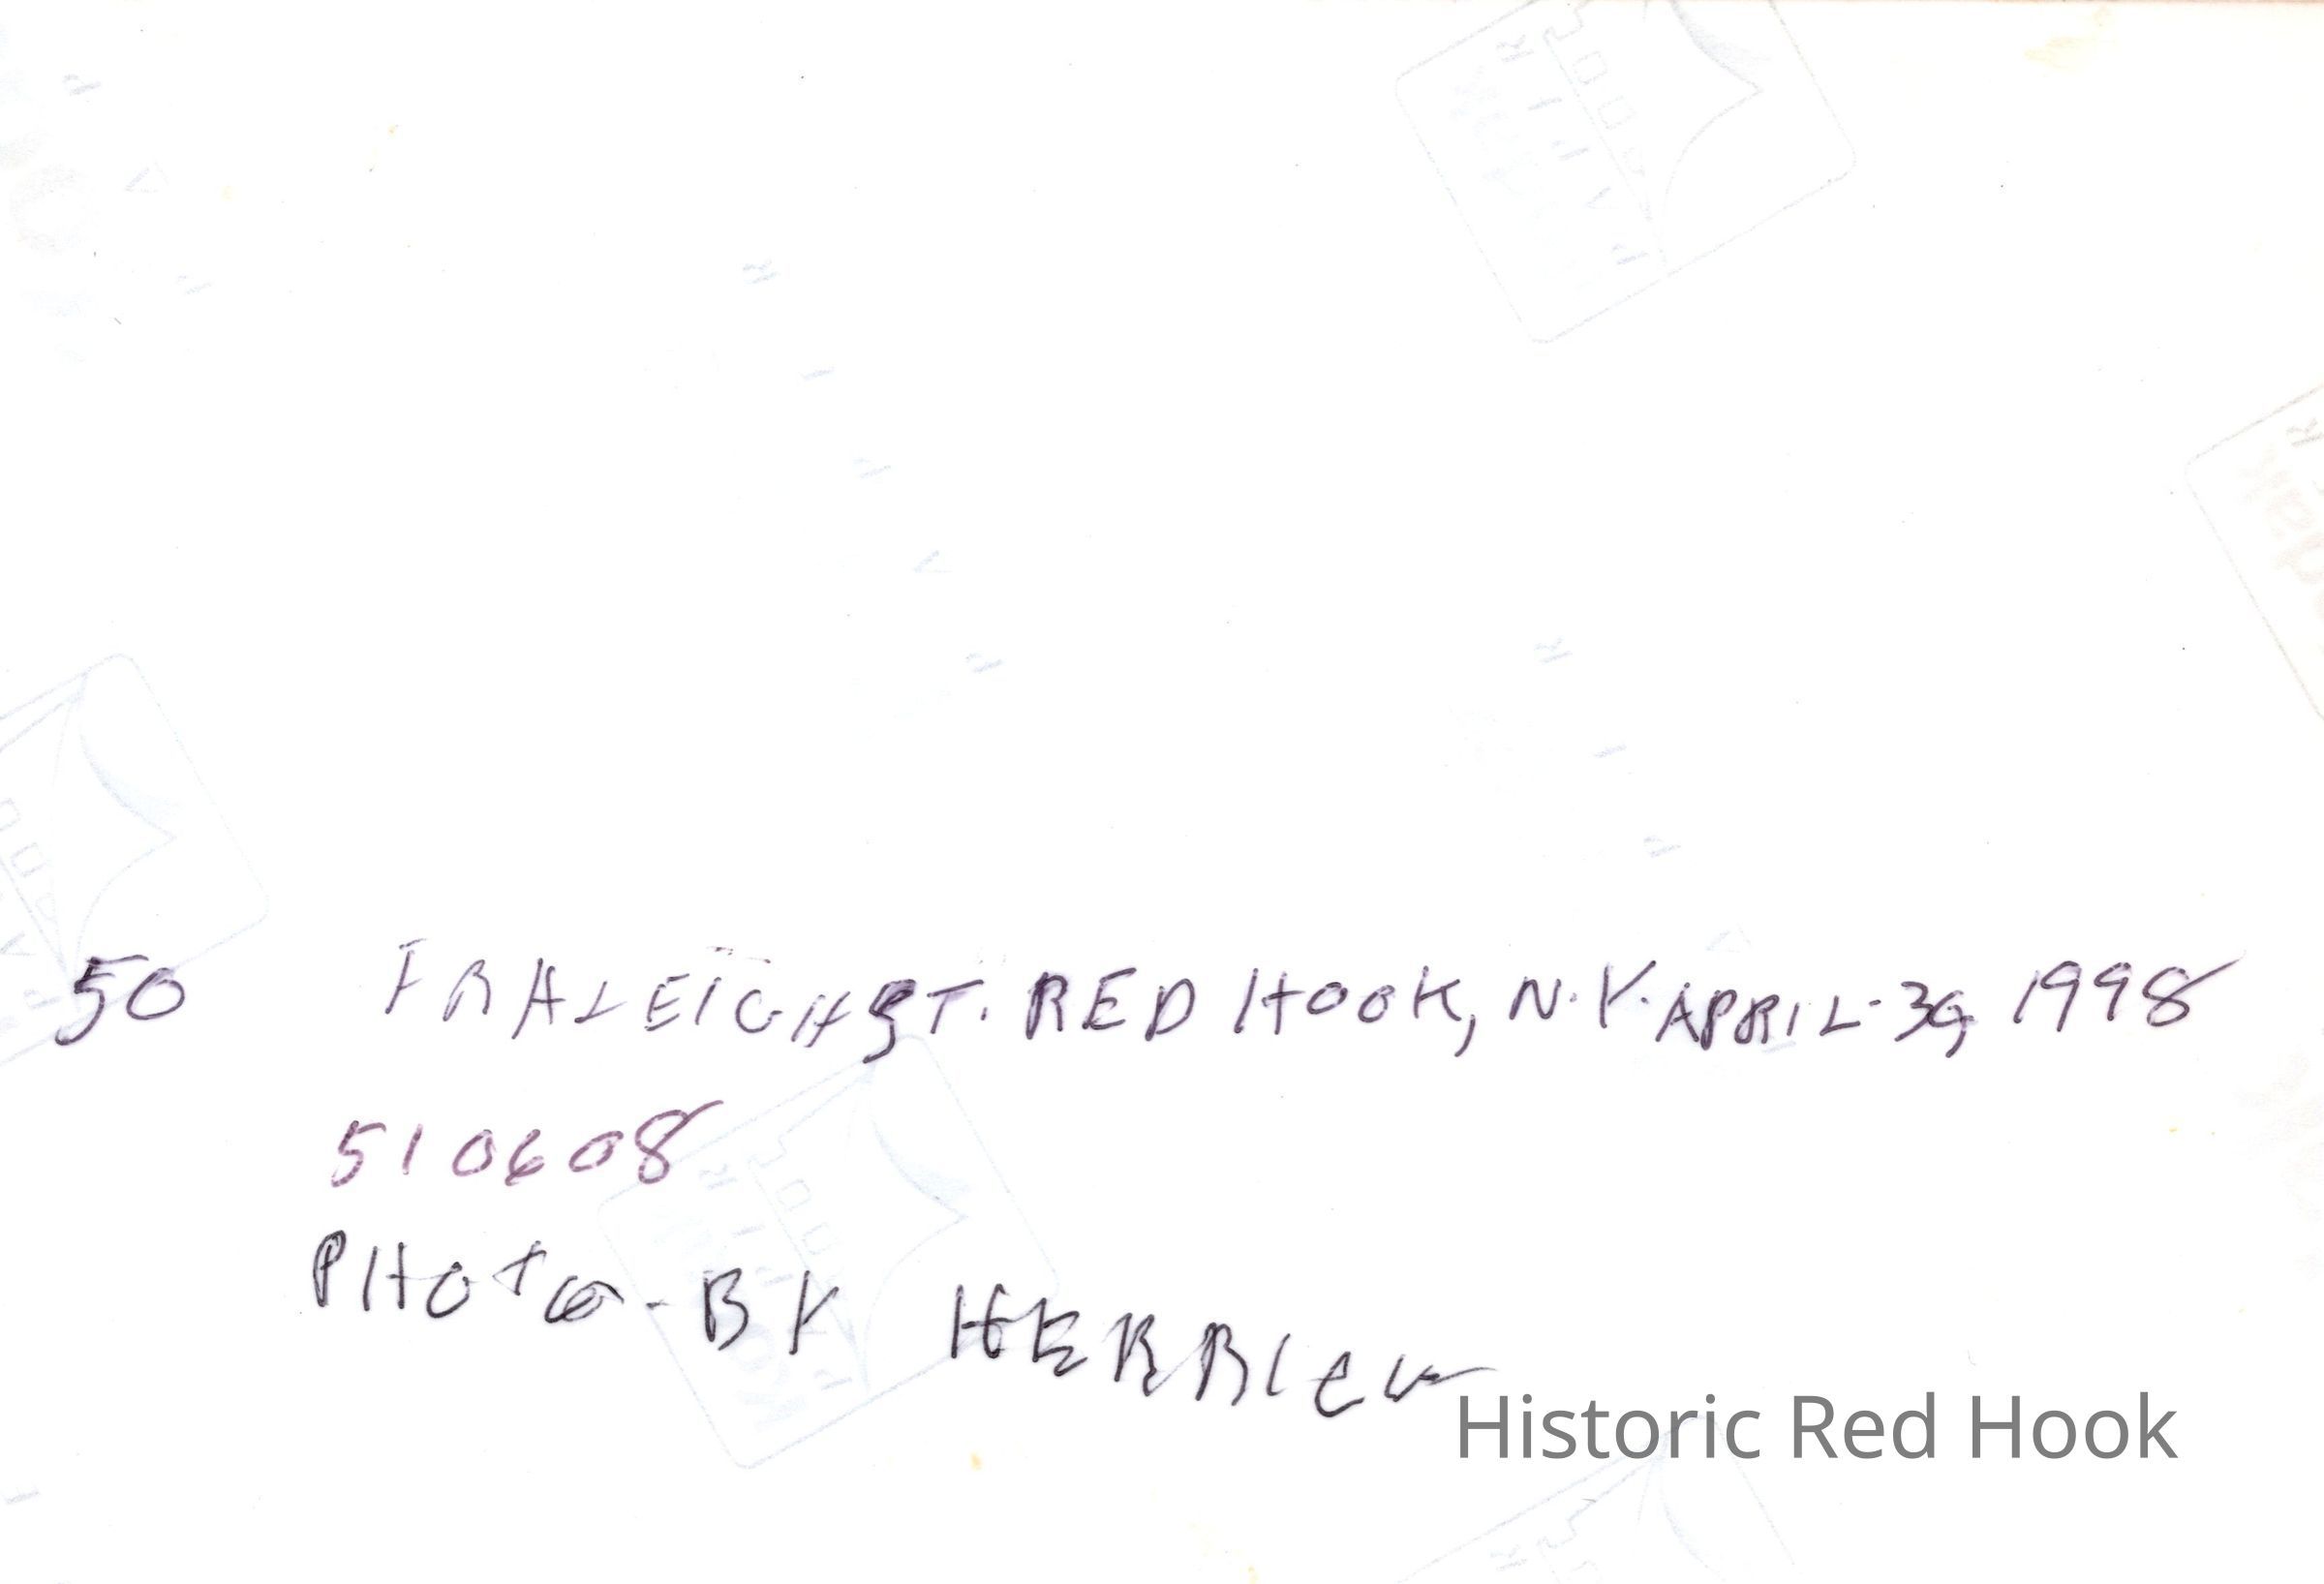 50 FRALEIGH ST. RED HOOK, N.Y. APRIL-30, 1998
510608
PHOTO-BY HERRICK
Historic Red Hook